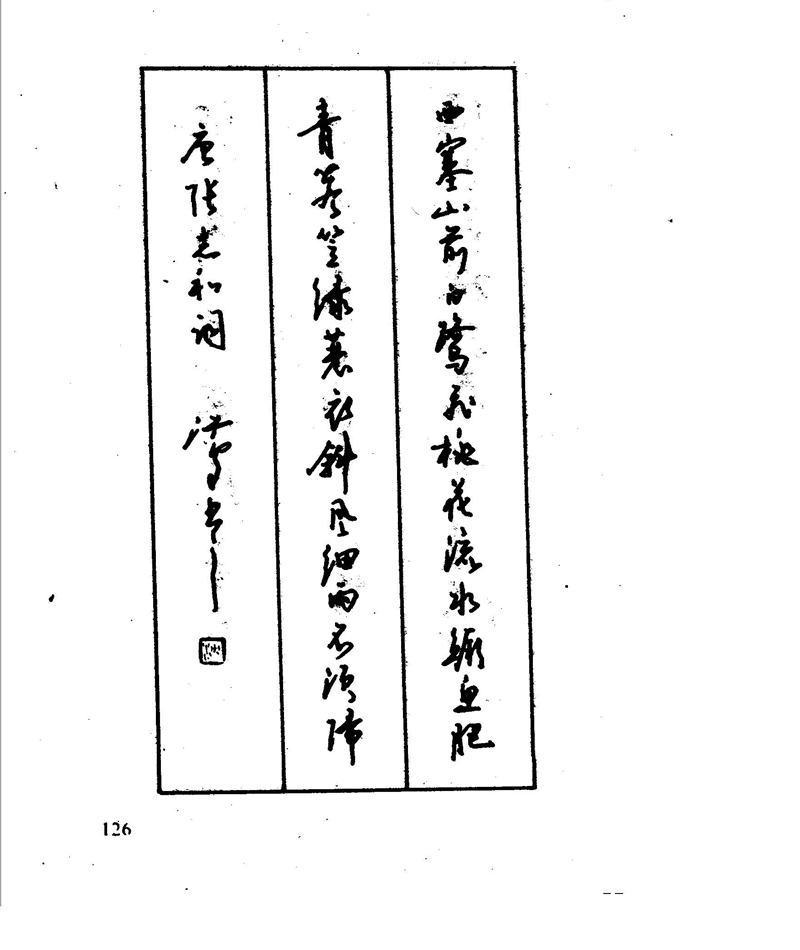 西塞山前白鹭飞桃花流水鳜鱼肥
青箬笠绿蓑衣斜风细雨不须归
唐张志和词
书
126